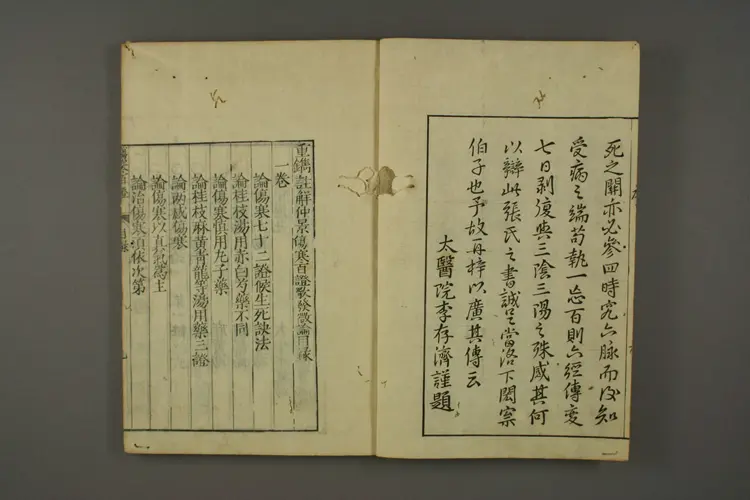 死之關亦必參四時究六脉而後知
受病之端苟執一忘百則六經傳變
七日剥復與三陰三陽之殊感其何
以辯此張氏之書誠足當洛下閎案
伯子也予故再梓以廣其傳云
太醫院李存濟謹題
重鐫註解仲景傷寒百證歌發微論目錄
一卷
論傷寒七十二證候生死訣法
論桂枝湯用赤白芍藥不同
論傷寒慎用丸子藥
論桂枝麻黄青龍等湯用藥三證
論兩感傷寒
論傷寒以真氣為主
論治傷寒須依次第
目錄